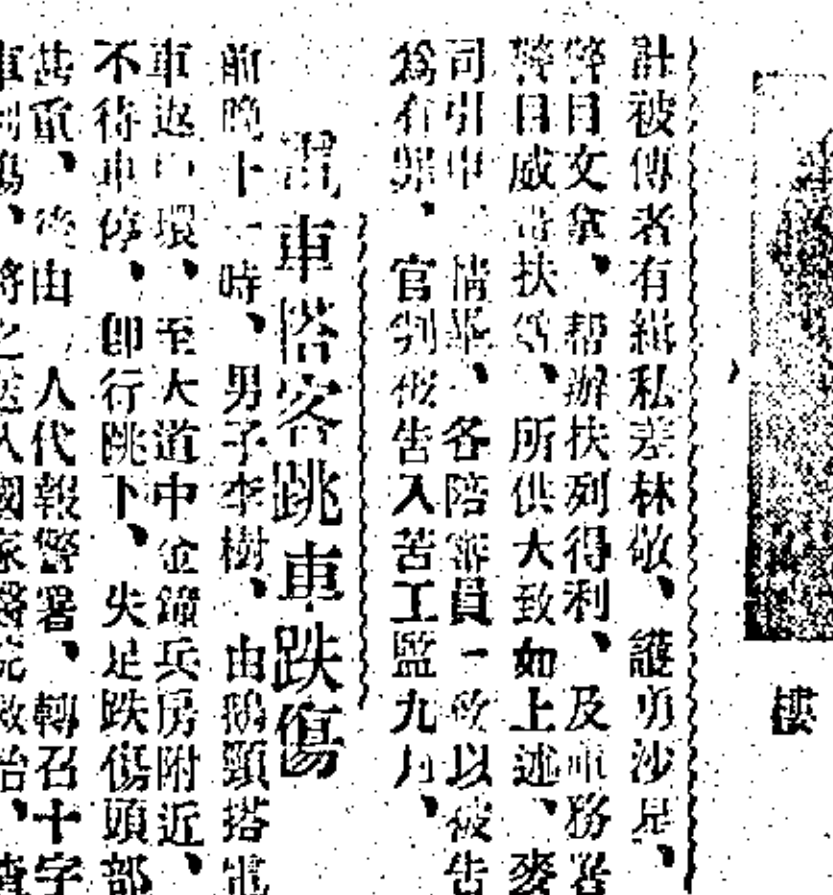 樓
計被傳者有緝私差林敬、護勇沙是、
警目文拿、帮辦扶列得利、及車務署
警目威 扶 、所供大致如上述、麥
司引申 情畢、各陪審員一致以被告
為有罪、官判被告入苦工監九月、
電車搭客跳車跌傷
前晚十一時、男子李樹、由鵝頸搭電
車返中環、至大道中金鐘兵房附近、
不待車停、卽行跳下、失足跌傷頭部
甚重、後由 人代報警署、轉召十字
車到塲、將之送入國家醫院救治、查